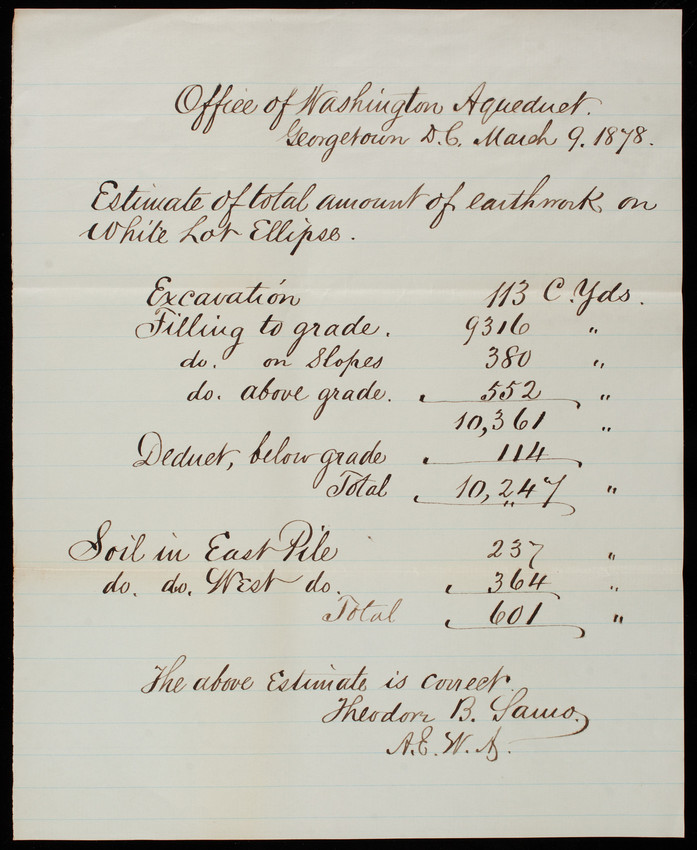 Office of Washington Aqueduct.
Georgetown D.C. March 9. 1878.
Estimate of total amount of earthwork on
White Lot Ellipse.
Excavation 113 C. Yds.
Filling to grade. 9316 "
do. on Slopes 380 "
do. above grade. 552 "
10,361 "
Deduct, below grade 114
Total 10,247 "
Soil in East Pile 237 "
do. do. West do. 364 "
Total 601 "
The above Estimate is correct.
Theodore B. Samo.
A.E.W.A.